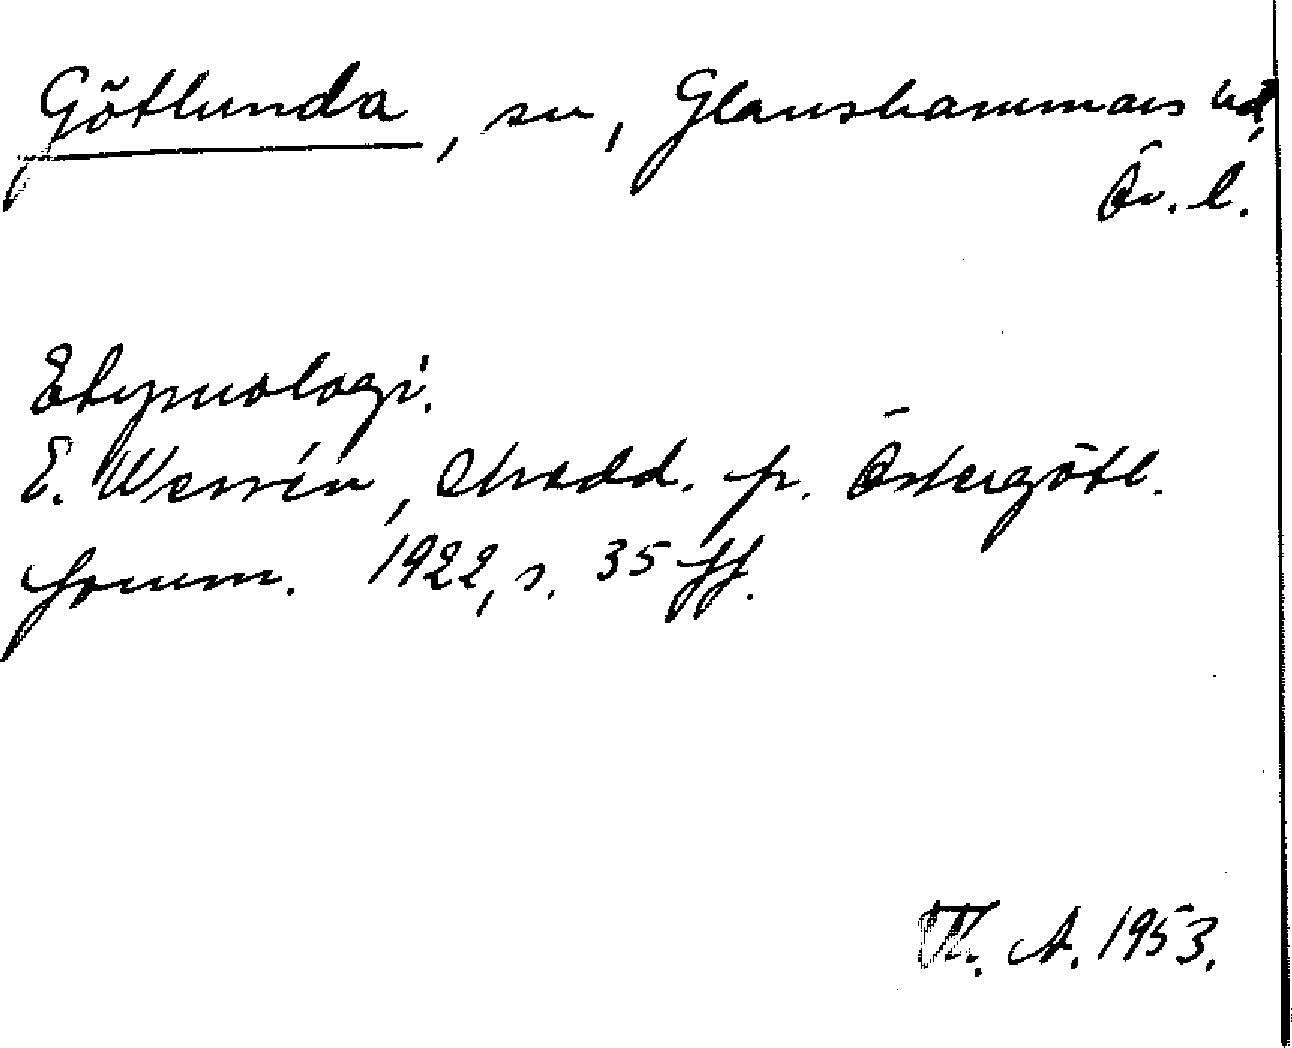 Götlunda, sn, Glanshammars hd,
Ör. l.
Etymologi.
E. Wessén, Medd. fr. Östergötl.
fornm. 1922, s. 35 ff.
A. 1953.